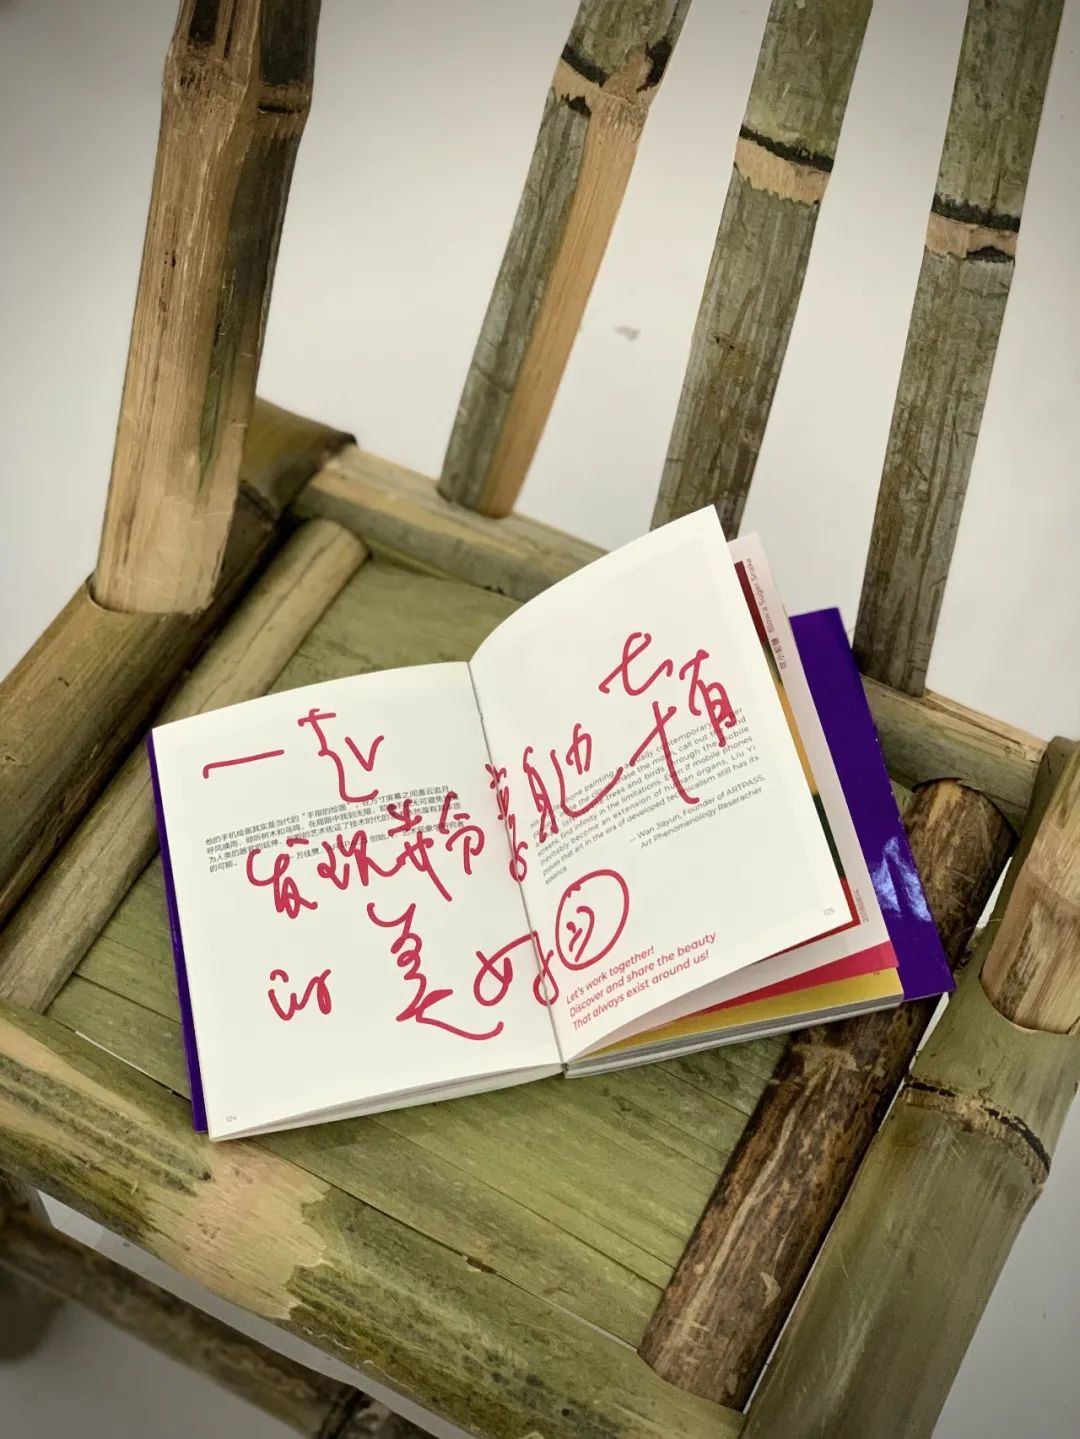 一起
发现并分享
的美好
他的手机绘画其实是当代的“手指的绘画”，在方寸屏幕之间邀云追月，
呼风唤雨，倾听树木和鸟鸣，在局限中找到无限，
为人类的器官的延伸，
的可能。
124
phone painting is actually contemporary
the moon, call out the wind
the trees and birds through the mobile
screens, find infinity in the limitations. Even if mobile phones
inevitably become an extension of human organs, Liu Yi
proves that art in the era of developed technicalism still has its
essence.
— Wan Jiayun, Founder of ARTPASS,
Art Phenomenology Reseracher
Let's work together!
Discover and share the beauty
That always exist around us!
125
Blow a Suger Snake